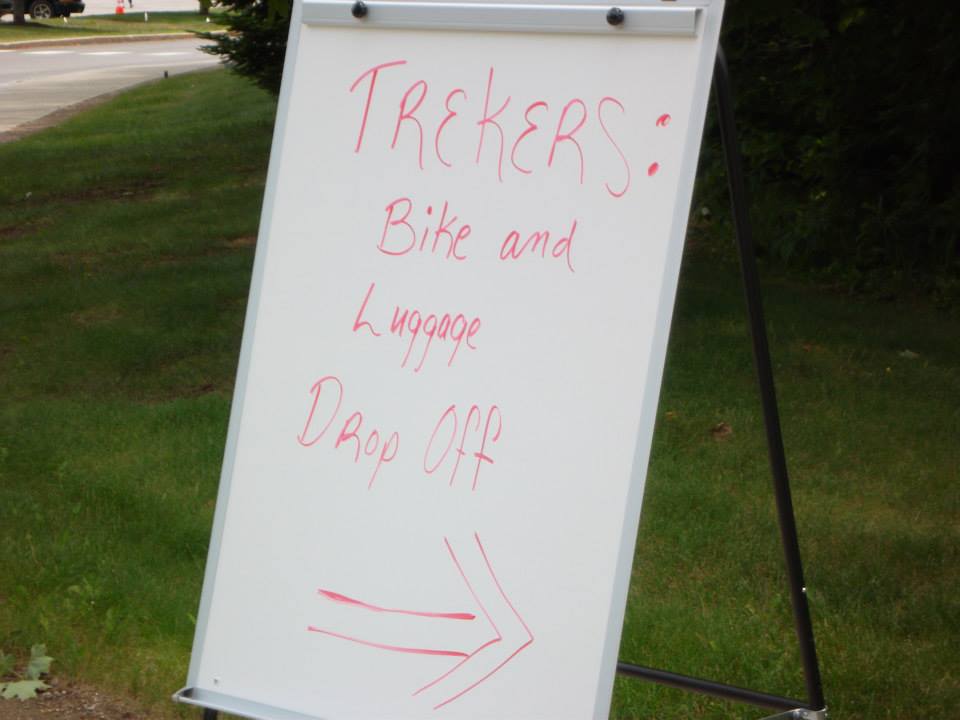 TREKERS:
Bike and
Luggage
Drop Off